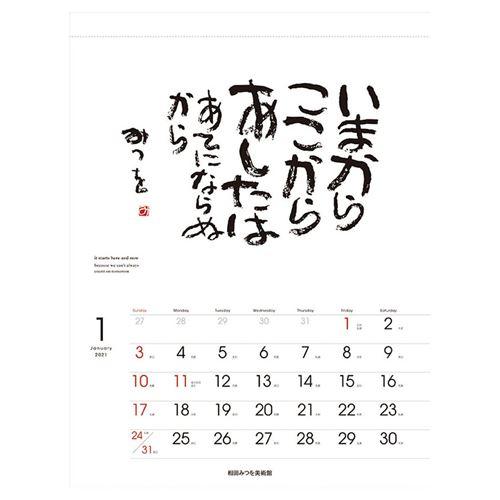 いまから
ここから
あしたは
あてにならぬ
から
みつを
it starts here and now
because we can't always
1
January
2021
Sunday Monday Tuesday Wednesday Thursday Friday Saturday
27 28 29 30 31 1 2
3 4 5 6 7 8 9
10 11 12 13 14 15 16
17 18 19 20 21 22 23
24/31 25 26 27 28 29 30
相田みつを美術館